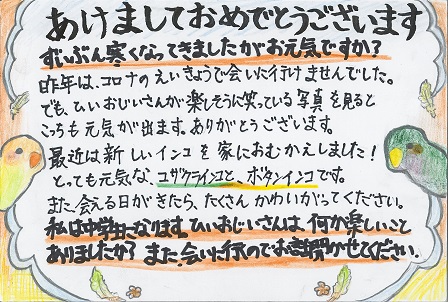 あけましておめでとうございます
ずいぶん寒くなってきましたがお元気ですか?
昨年は、コロナのえいきょうで会いに行けませんでした。
でも、ひいおじいさんが楽しそうに笑っている写真を見ると
こっちも元気が出ます。ありがとうございます。
最近は新しいインコを家におむかえしました!
とっても元気な、コザクラインコと、ボタンインコです。
また、会える日がきたら、たくさんかわいがってください。
私は中学生になります。ひいおじいさんは、何か楽しいこと
ありましたか?また、会いに行くのでお話聞かせてください。